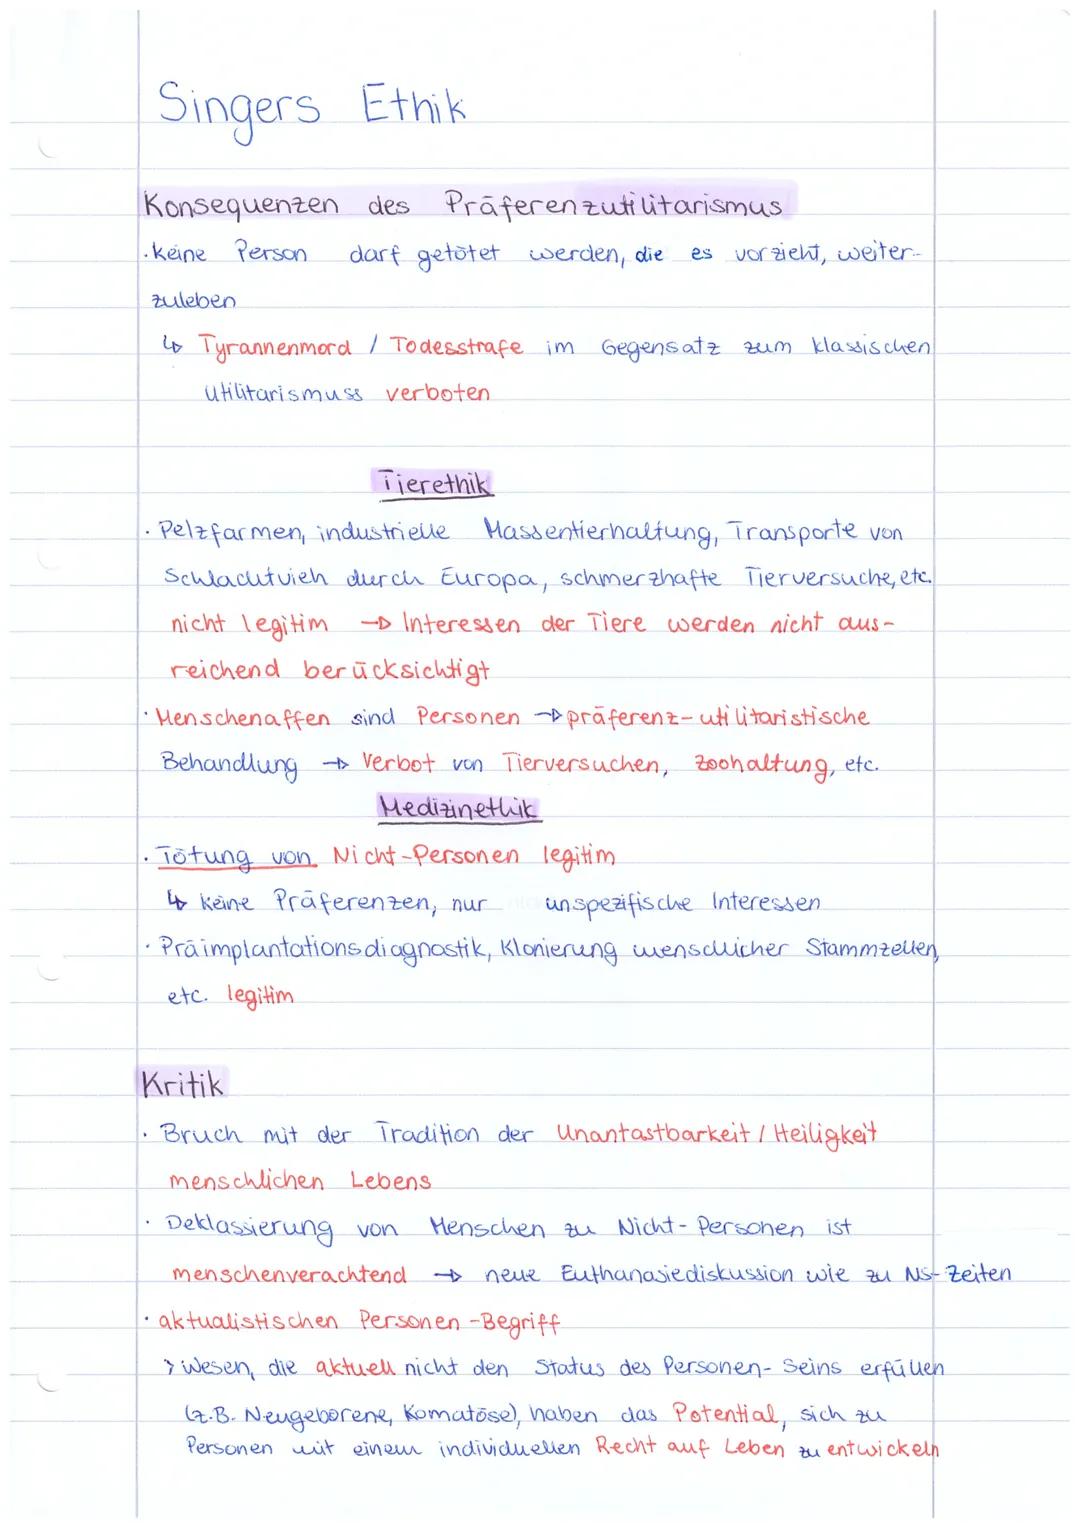 Singers Ethik
Konsequenzen des Präferenzutilitarismus
· Keine Person darf getötet werden, die es vorzieht, weiter-
zuleben
↳ Tyrannenmord / Todesstrafe im Gegensatz zum klassischen
Utilitarismuss verboten
Tierethik
· Pelzfarmen, industrielle Massentierhaltung, Transporte von
Schlachtvieh durch Europa, schmerzhafte Tierversuche, etc.
nicht legitim → Interessen der Tiere werden nicht aus-
reichend berücksichtigt
· Menschenaffen sind Personen → präferenz-utilitaristische
Behandlung → Verbot von Tierversuchen, Zoohaltung, etc.
Medizinethik
· Tötung von Nicht-Personen legitim
↳ keine Präferenzen, nur unspezifische Interessen
· Präimplantationsdiagnostik, Klonierung menschlicher Stammzellen,
etc. legitim
Kritik
· Bruch mit der Tradition der Unantastbarkeit / Heiligkeit
menschlichen Lebens
· Deklassierung von Menschen zu Nicht-Personen ist
menschenverachtend → neue Euthanasiediskussion wie zu NS-Zeiten
· aktualistischen Personen-Begriff
> Wesen, die aktuell nicht den Status des Personen-Seins erfüllen
(z.B. Neugeborene, Komatöse), haben das Potential, sich zu
Personen mit einem individuellen Recht auf Leben zu entwickeln